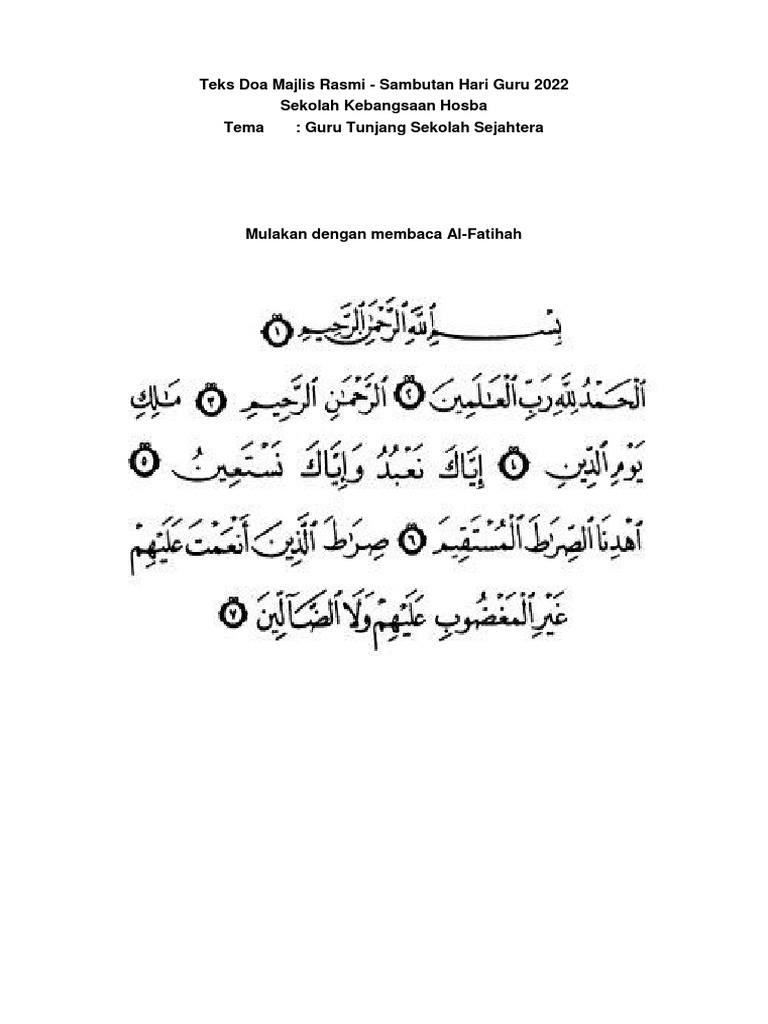 Teks Doa Majlis Rasmi - Sambutan Hari Guru 2022
Sekolah Kebangsaan Hosba
Tema : Guru Tunjang Sekolah Sejahtera
Mulakan dengan membaca Al-Fatihah
بِسْمِ ٱللَّهِ ٱلرَّحْمَٰنِ ٱلرَّحِيمِ ١
ٱلْحَمْدُ لِلَّهِ رَبِّ ٱلْعَٰلَمِينَ ٢ ٱلرَّحْمَٰنِ ٱلرَّحِيمِ ٣ مَٰلِكِ
يَوْمِ ٱلدِّينِ ٤ إِيَّاكَ نَعْبُدُ وَإِيَّاكَ نَسْتَعِينُ ٥
ٱهْدِنَا ٱلصِّرَٰطَ ٱلْمُسْتَقِيمَ ٦ صِرَٰطَ ٱلَّذِينَ أَنْعَمْتَ عَلَيْهِمْ
غَيْرِ ٱلْمَغْضُوبِ عَلَيْهِمْ وَلَا ٱلضَّآلِّينَ ٧